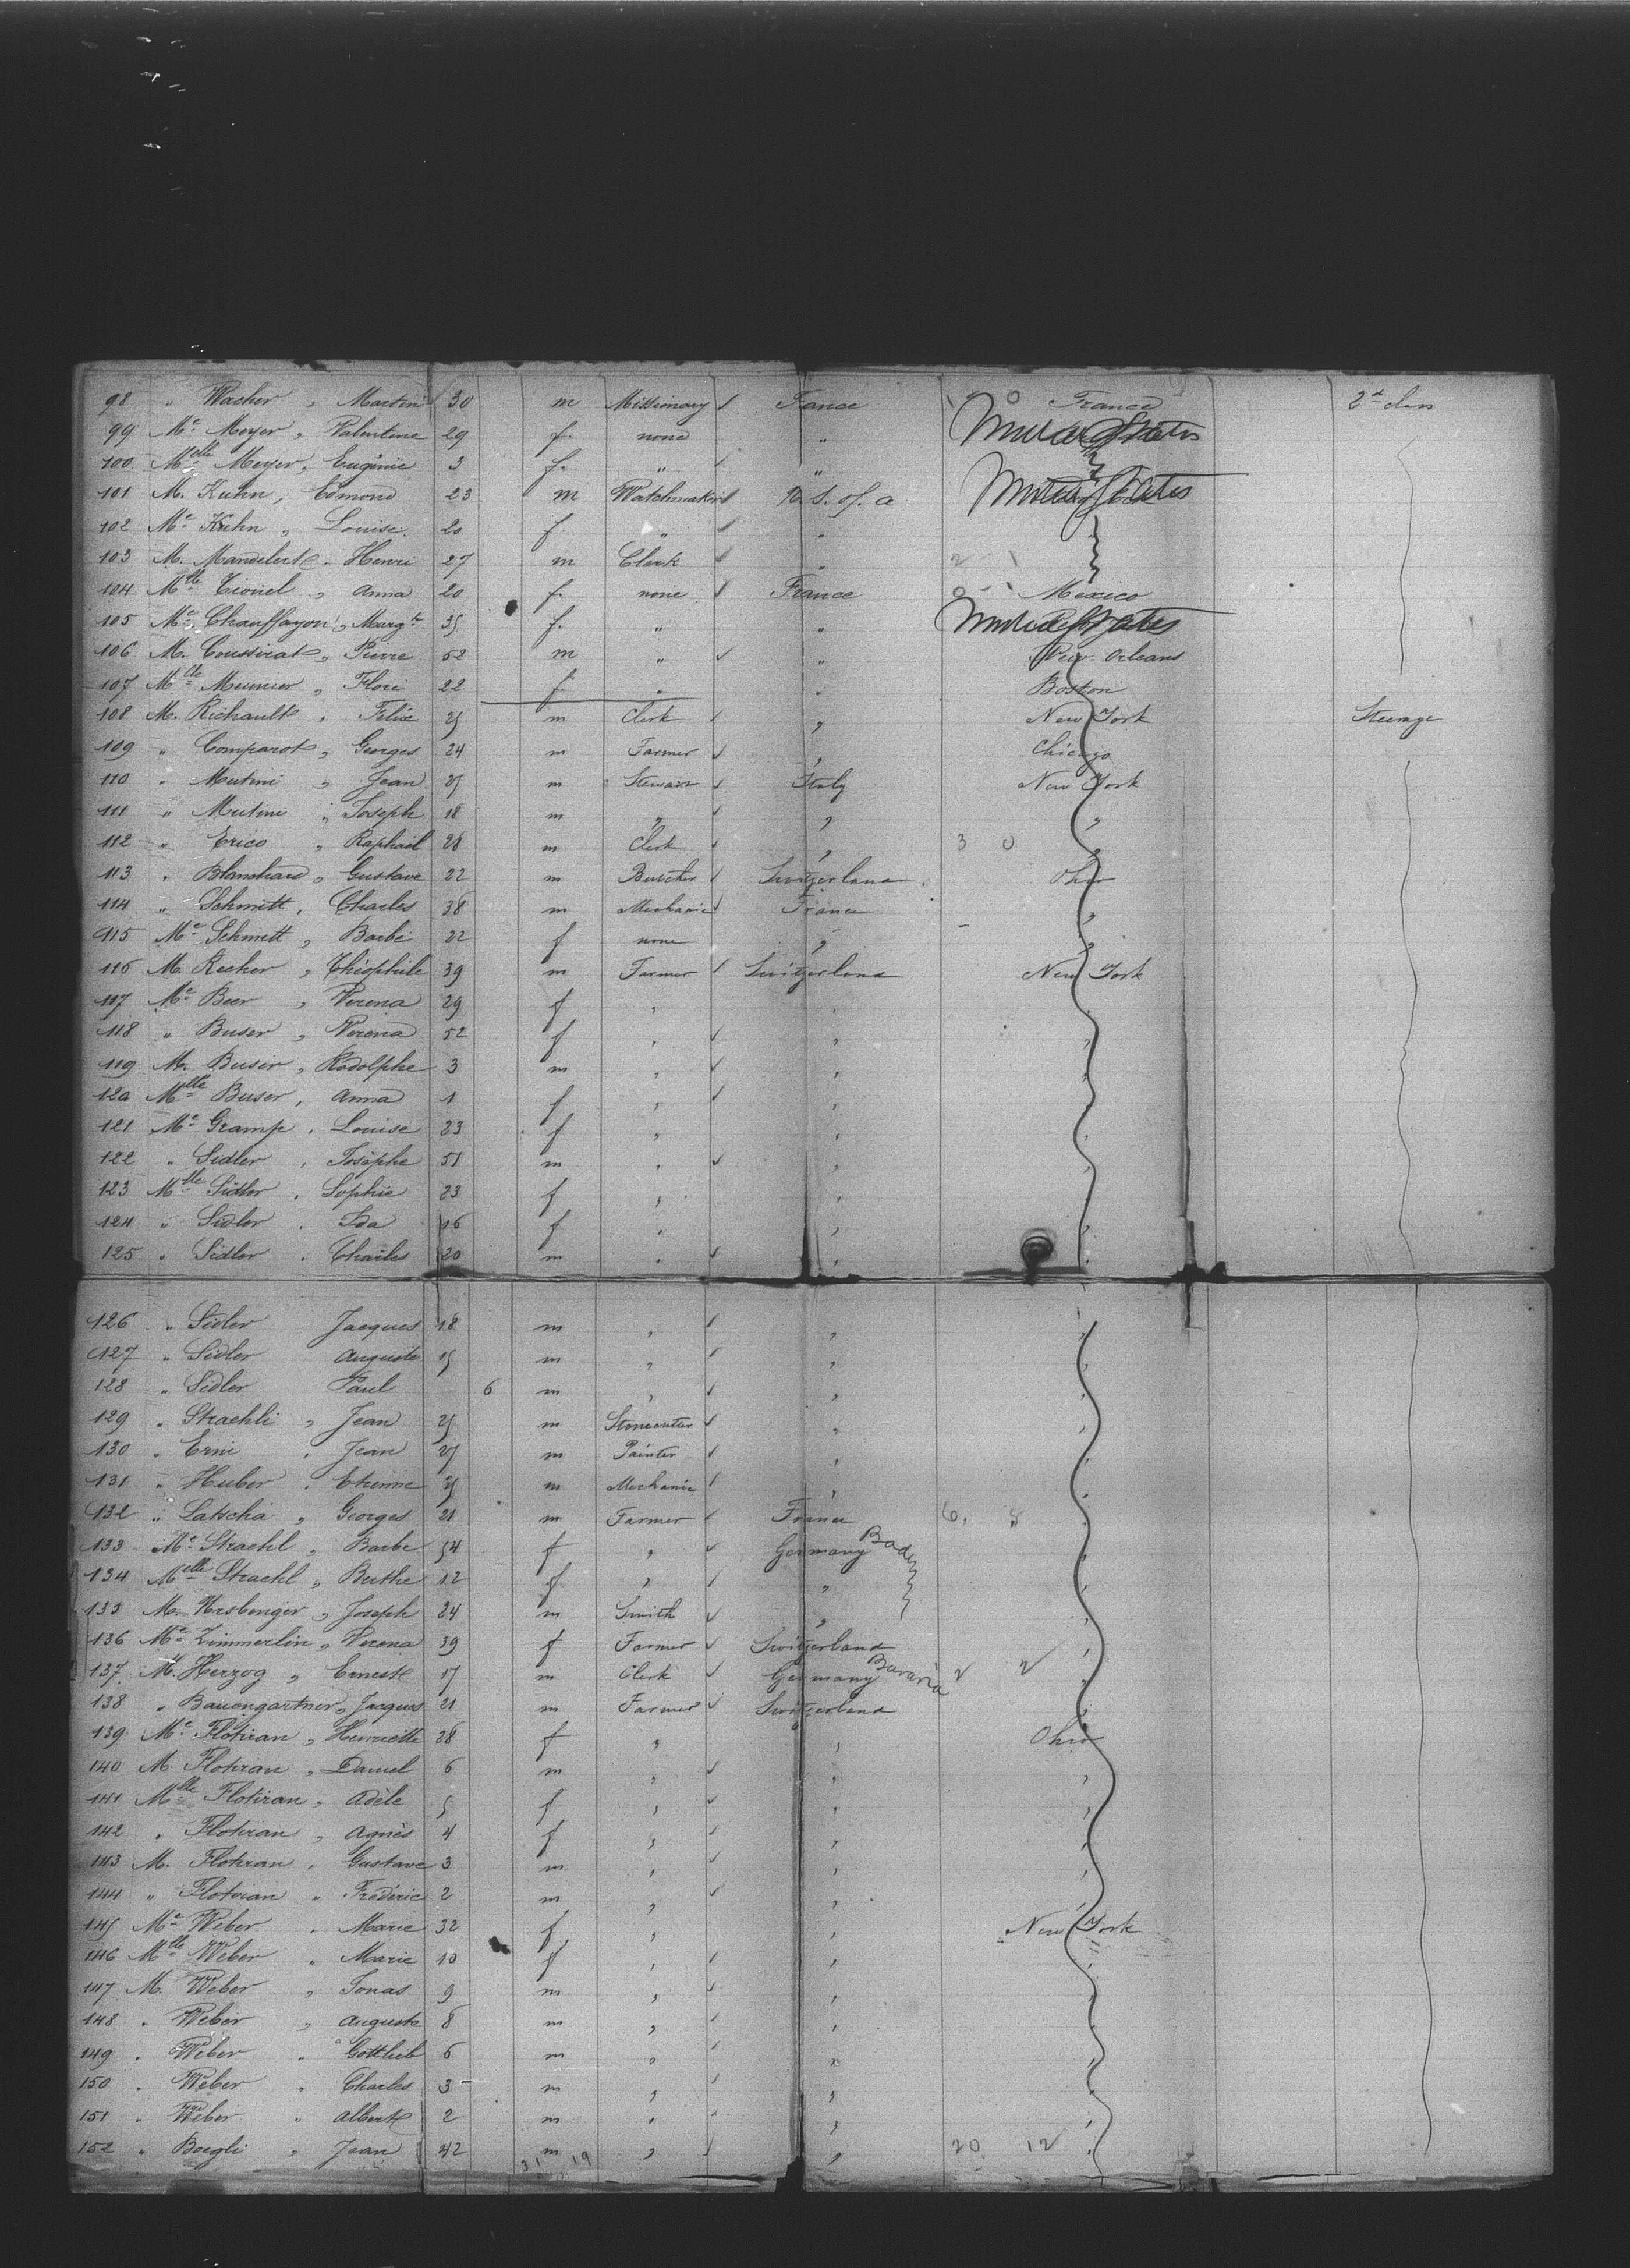 98 " Wacher " Martin 30 m Missionary France France 2d class
99 Me Meyer " Valentine 29 f. none "
100 Melle Meyer " Eugénie 3 f. " "
101 M. Kuhn, Edmond 23 m Watchmaker U. S. of. a United States
102 Me Kuhn " Louise 20 f. " "
103 M. Mandelert " Henri 27 m Clerk "
104 Mlle " Anna 20 f. none France Mexico
105 Me Chauffayon " Margte 35 f. " " United States
106 M. Coussirat " Pierre 52 m " " New Orleans
107 Mlle Meunier " Flore 22 f. " " Boston
108 M. Richault " Felix 25 m Clerk " New York Steerage
109 " Comparot " Georges 24 m Farmer " Chicago
110 " Mutini " Jean 25 m Italy New York
111 " Mutini " Joseph 18 m " " "
112 " Erico " Raphaël 28 m Clerk " " 3 0
113 " Blanchard " Gustave 22 m Butcher Switzerland Ohio
114 " Schmitt, Charles 38 m Mechanic France "
115 Me Schmitt " Barbe 22 f none " "
116 M. Recher " Théophile 39 m Farmer Switzerland New York
117 Me Beer " Verena 29 f " "
118 " Buser " Verena 52 f " " "
119 M. Buser " Rodolphe 3 m " " "
120 Mlle Buser, Anna 1 f " "
121 Me Gramp. Louise 23 f " "
122 " Sidler " Josephe 51 m " " "
123 Mlle Sidler " Sophie 23 f " " "
124 " Sidler " Ida 16 f " " "
125 " Sidler " Charles 20 m " " "
126 " Sidler Jacques 18 m " " "
127 " Sidler Auguste 15 m " " "
128 " Sidler Paul 6 m " " "
129 " Straehli " Jean 25 m Stonecutter "
130 " Erni " Jean 27 m Painter "
131 " Huber " Etienne 35 m Mechanic "
132 " Latscha " Georges 21 m Farmer France 6. 8
133 Me Straehl " Barbe 54 f " Germany Baden
134 Melle Straehl " Berthe 12 f " "
135 M. Joseph 24 m Smith "
136 Me Zimmerlin " Verena 39 f Farmer Switzerland
137 M. Herzog " Erneste 17 m Clerk Germany Bavaria 2 2
138 " Baumgartner " Jacques 21 m Farmer Switzerland
139 Me Flotiran " Henriette 28 f " " Ohio
140 M Flotiran " Daniel 6 m " " "
141 Mlle Flotiran " Adèle 5 f " " "
142 " Flotiran " Agnès 4 f " " "
143 M. Flotiran " Gustave 3 m " " "
144 " Flotiran " Fréderic 2 m " " "
145 Me Weber " Marie 32 f " " New York
146 Mlle Weber " Marie 10 f " " "
147 M. Weber " Jonas 9 m " " "
148 " Weber " Auguste 8 m " " "
149 " Weber " Gottlieb 6 m " " "
150 " Weber " Charles 3 m " " "
151 " Weber " Albert 2 m " " "
152 " Boegli " Jean 42 m " " 20 12 "
31 19